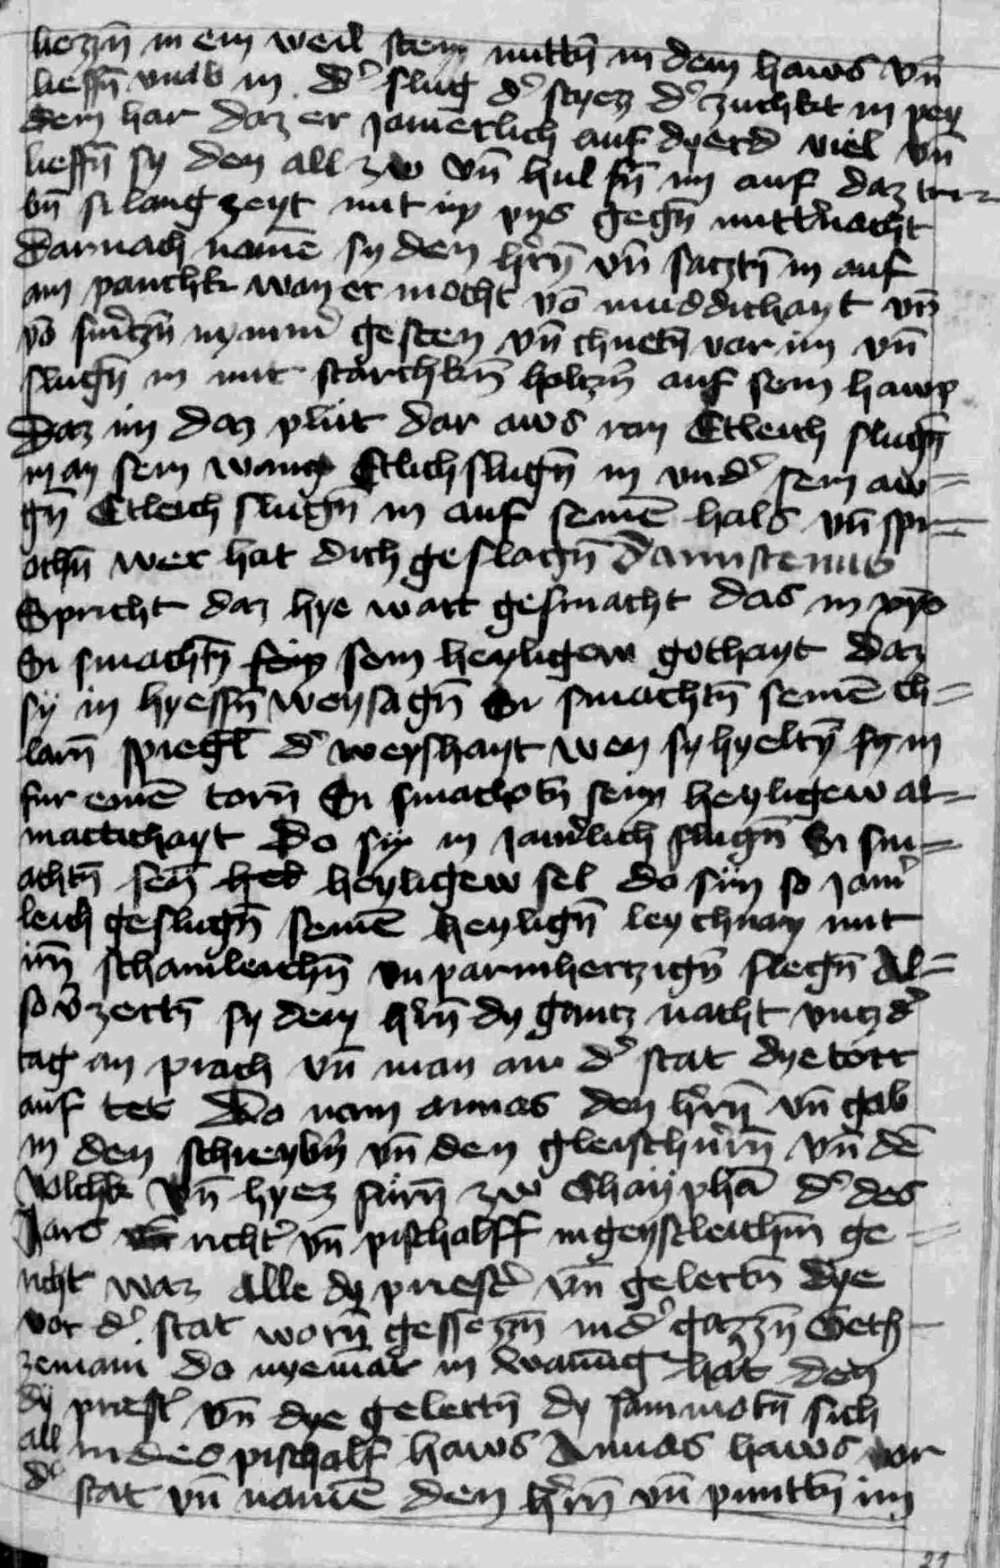 liezzn̄ in ein weil sten mittn̄ in dem haws vn̄
lieffn̄ vmb in dˢ slug dˢ styez dˢ zuchkt in pey
dem har daz er jamerlich auf dyerd viel vn̄
lieffn̄ sy den all zw vn̄ hulfn̄ im auf daz
bn̄ si lang zeyt mit im vncz gegn̄ mittˢnacht
darnach namē sy den hˢrn̄ vn̄ saczтn̄ in auf
ain panchk wan er mocht vō muddichayt vn̄
vō smˢczn̄ nymmˢ gesten vn̄ chnetn̄ vor im vn̄
slugn̄ in mit starchkn̄ holczˢn auf sein hawp
Daz im daz plut dar aws ran Etleich slugn̄
in an sein wang Etlich slugn̄ in vndˢ sein aw=
gn̄ Etleich slugn̄ in auf seinē hals vn̄ spr=
achn̄ wer hat dich geslagn̄
Spricht daz hye wart gesmacht das in
Si smachtn̄ sein heyligew gothayt daz
sy in hyessn̄ weysagn̄ Si smachtn̄ seinē ch=
larn̄ spiegl̄ dˢ weyshayt wen sy hyeltn̄ syn
fur einē torn̄ Si smachtn̄ sein heyligew al=
mactichayt Do sy in jamˢlich slugn̄ Si sm=
achtn̄ sein heyligew sel do sy in so jamˢ
leich geslugn̄ seinē heylign̄ leychnam mit
irn̄ schamleichn̄ vnparmhertzign̄ slegn̄ Al=
so vˢzertn̄ sy dem hˢrn̄ dy gantz nacht vntz dˢ
tag an prach vn̄ man an dˢ stat dye torr
auf tet Do nam annas den hˢrn̄ vn̄ gab
in den schreybˢn vn̄ den gleischnˢrn̄ vn̄ dē
volchk vn̄ hyez furn̄ zw Chayphā dˢ des
Jars richtˢ vn̄ pischolff in geystleichm̄ ge=
richt waz Alle dy priestˢ vn̄ gelertn̄ dye
vor dˢ stat worn̄ gessezzn̄ in dˢ gazzn̄ Geth=
zemani do nyemāt in wanūg hat den
dy priestˢ vn̄ dye gelertn̄ dy sammotn̄ sich
all in des pischolf haws Annas haws vor
dˢ stat vn̄ namē den hˢrn̄ vn̄ puntn̄ im